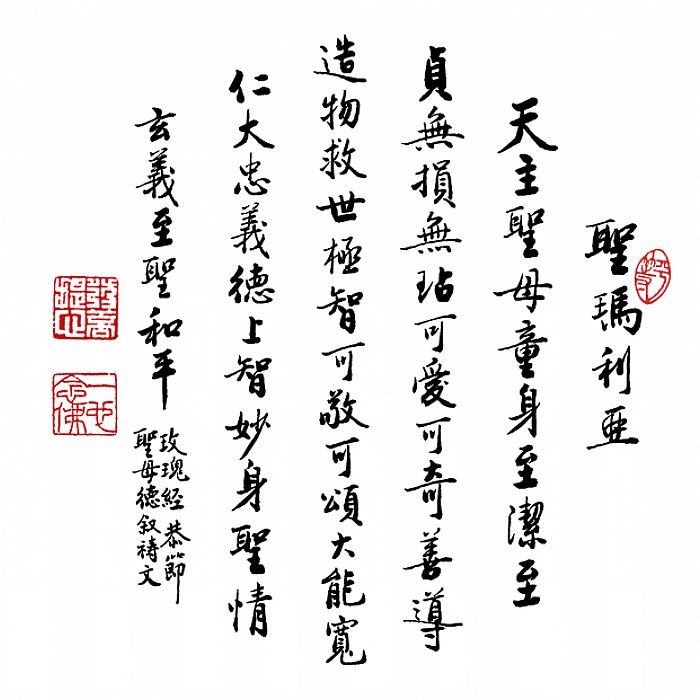 聖瑪利亞
天主聖母童身至潔至
貞無損無玷可愛可奇善導
造物救世極智可敬可頌大能寬
仁大忠義德上智妙身聖情
玄義至聖和平
玫瑰经恭節
聖母德叙祷文
一心念佛